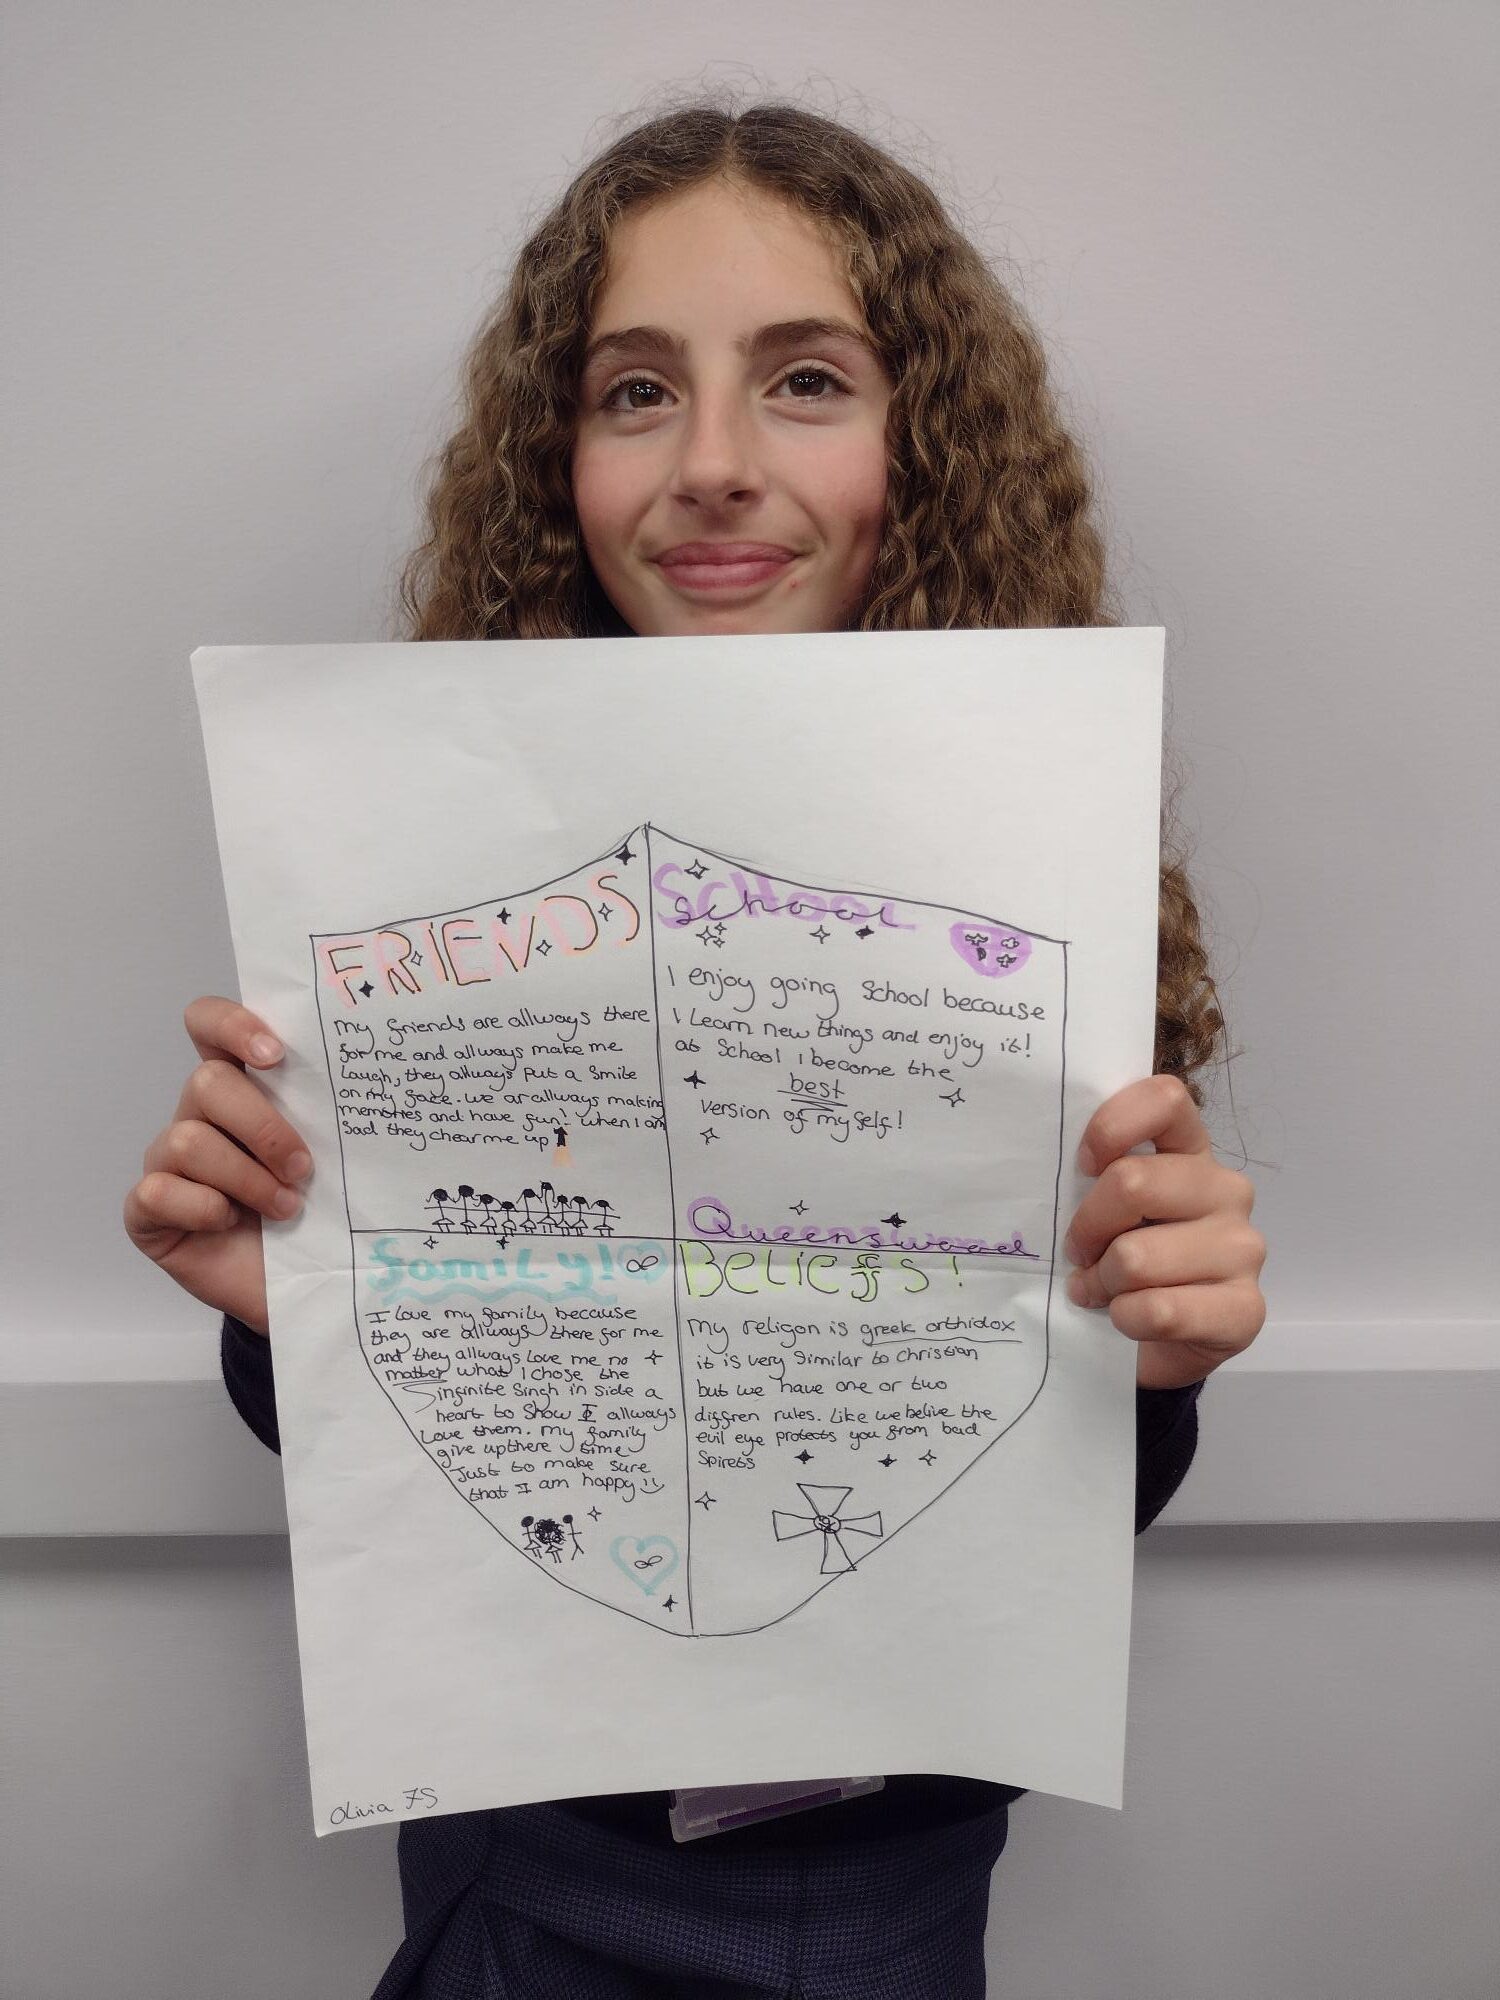 FRIENDS
My friends are allways there
for me and allways make me
Laugh, they allways put a smile
on my face. we ar allways making
memories and have fun! when I am
sad they chear me up
SCHOOL
school
I enjoy going School because
I Learn new things and enjoy it!
at School I become the
best
version of my self!
Queenswood
family!
I love my family because
they are allways there for me
and they allways Love me no
matter what I chose the
infinite Singh in side a
heart to show I allways
Love them. My family
give up there time
Just to make sure
that I am happy
BELiEffs!
My religon is greek orthidox
it is very similar to christian
but we have one or two
diffren rules. Like we belive the
evil eye protects you from bad
Spirets
Olivia 7S